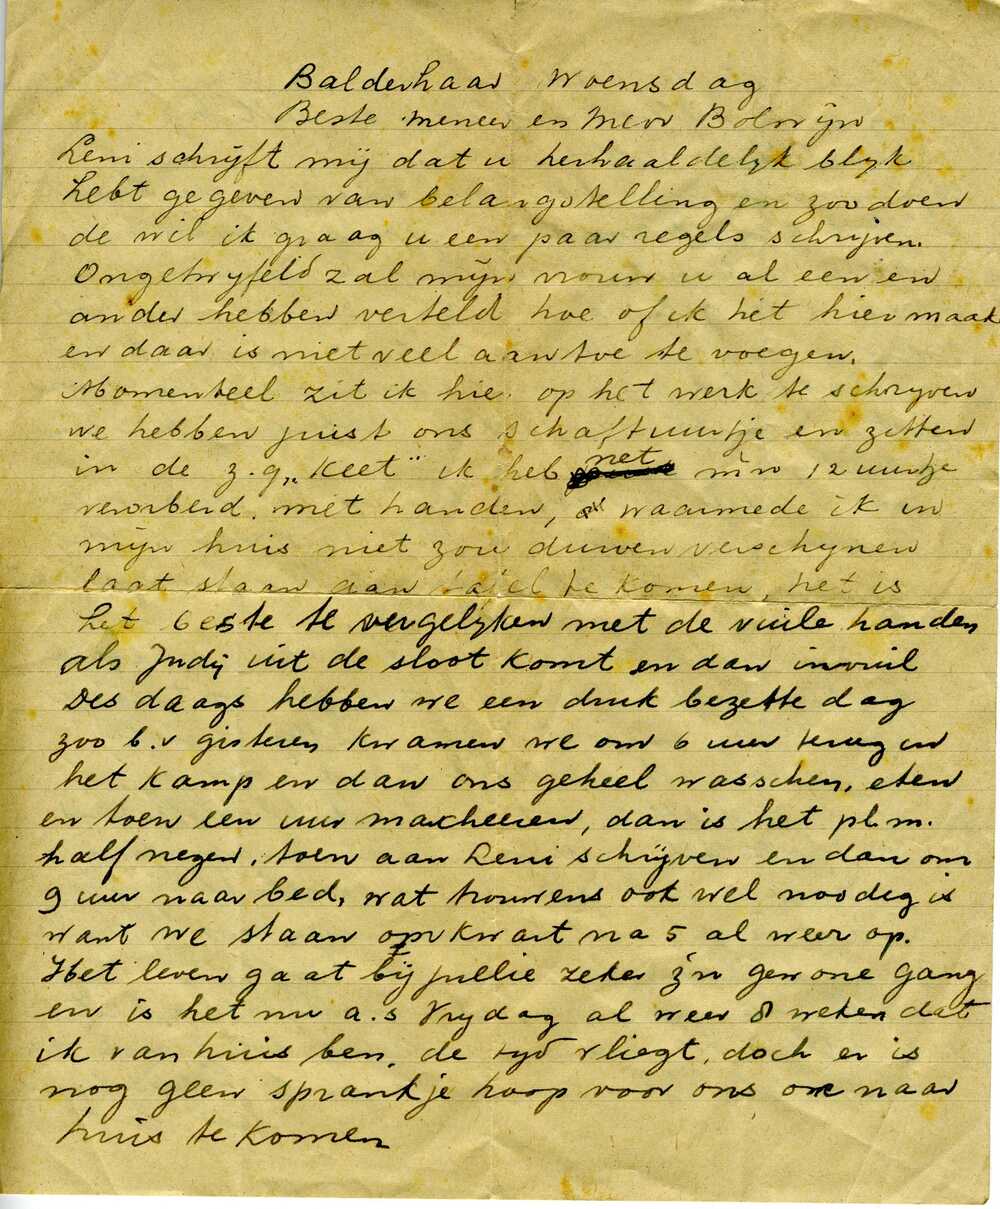 Balderhaar Woensdag
Beste meneer en Mevr Bolwijn
Leni schrijft mij dat u herhaaldelijk blijk
hebt gegeven van belangstelling en zoodoen
de wil ik graag u een paar regels schrijven.
Ongetwyfeld zal mijn vrouw u al een en
ander hebben verteld hoe of ik het hier maak
en daar is niet veel aan toe te voegen.
Momenteel zit ik hier op het werk te schryven
we hebben juist ons schaftuurtje en zitten
in de z.g. „Keet" ik heb net m'n 12 uurtje
verorberd. met handen, waarmede ik in
mijn huis niet zou durven verschynen
laat staan aan tafel te komen, het is
het beste te vergelyken met de vuile handen
als Judy uit de sloot komt en dan invuil
Des daags hebben we een druk bezette dag
zoo b.v gisteren kwamen we om 6 uur terug in
het kamp en dan ons geheel wasschen, eten
en toen een uur marcheeren, dan is het pl.m.
half negen, toen aan Leni schrijven en dan om
9 uur naar bed, wat trouwens ook wel noodig is
want we staan om kwart na 5 al weer op.
Het leven gaat bij jullie zeker z'n gewone gang
en is het nu a.s Vrydag al weer 8 weken dat
ik van huis ben, de tyd vliegt, doch er is
nog geen sprankje hoop voor ons om naar
huis te komen